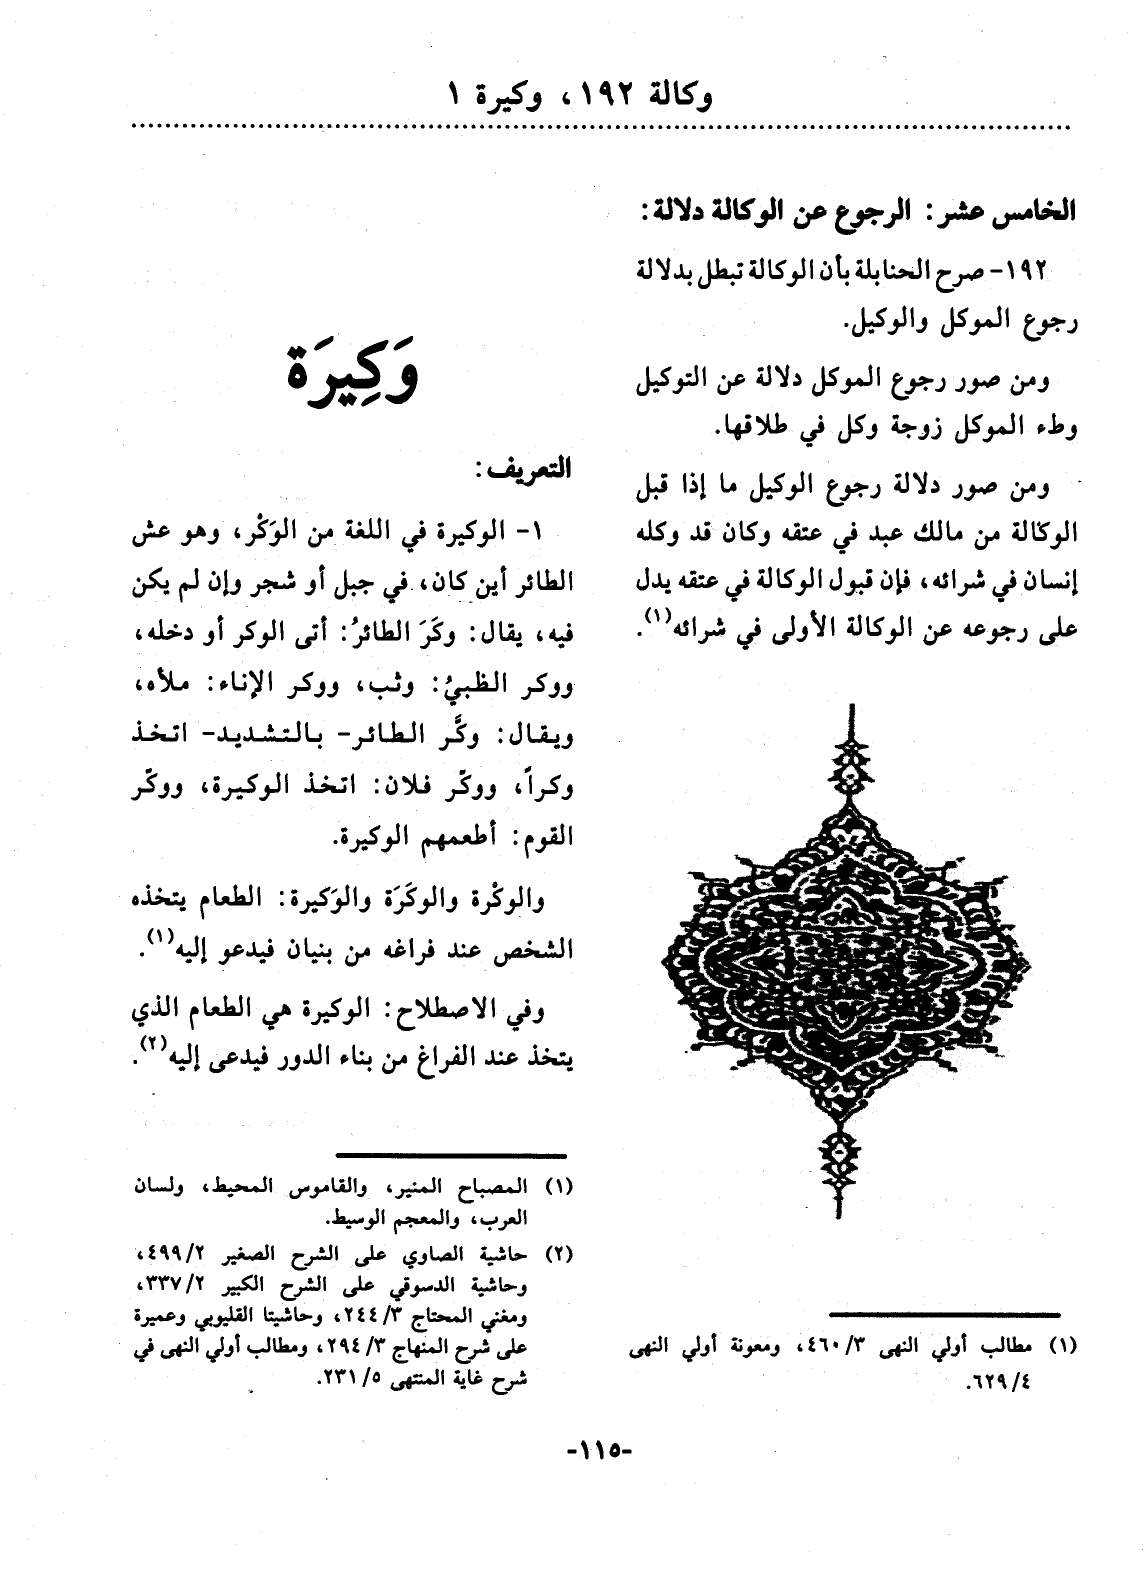 وكالة ١٩٢، وكيرة ١
الخامس عشر: الرجوع عن الوكالة دلالة:
١٩٢- صرح الحنابلة بأن الوكالة تبطل بدلالة
رجوع الموكل والوكيل.
ومن صور رجوع الموكل دلالة عن التوكيل
وطء الموكل زوجة وكل في طلاقها.
ومن صور دلالة رجوع الوكيل ما إذا قبل
الوكالة من مالك عبد في عتقه وكان قد وكله
إنسان في شرائه، فإن قبول الوكالة في عتقه يدل
على رجوعه عن الوكالة الأولى في شرائه(١).
(١) مطالب أولي النهى ٤٦٠/٣، ومعونة أولي النهى
٦٢٩/٤.
وَكِيرَة
التعريف:
١- الوكيرة في اللغة من الوَكْر، وهو عش
الطائر أين كان، في جبل أو شجر وإن لم يكن
فيه، يقال: وكَرَ الطائرُ: أتى الوكر أو دخله،
ووكر الظبيُ: وثب، ووكر الإناء: ملأه،
ويقال: وكَّر الطائر- بالتشديد- اتخذ
وكراً، ووكّر فلان: اتخذ الوكيرة، ووكّر
القوم: أطعمهم الوكيرة.
والوكْرة والوكَرَة والوَكيرة: الطعام يتخذه
الشخص عند فراغه من بنيان فيدعو إليه(١).
وفي الاصطلاح: الوكيرة هي الطعام الذي
يتخذ عند الفراغ من بناء الدور فيدعى إليه(٢).
(١) المصباح المنير، والقاموس المحيط، ولسان
العرب، والمعجم الوسيط.
(٢) حاشية الصاوي على الشرح الصغير ٤٩٩/٢،
وحاشية الدسوقي على الشرح الكبير ٣٣٧/٢،
ومغني المحتاج ٢٤٤/٣، وحاشيتا القليوبي وعميرة
على شرح المنهاج ٢٩٤/٣، ومطالب أولي النهى في
شرح غاية المنتهى ٢٣١/٥.
-١١٥-